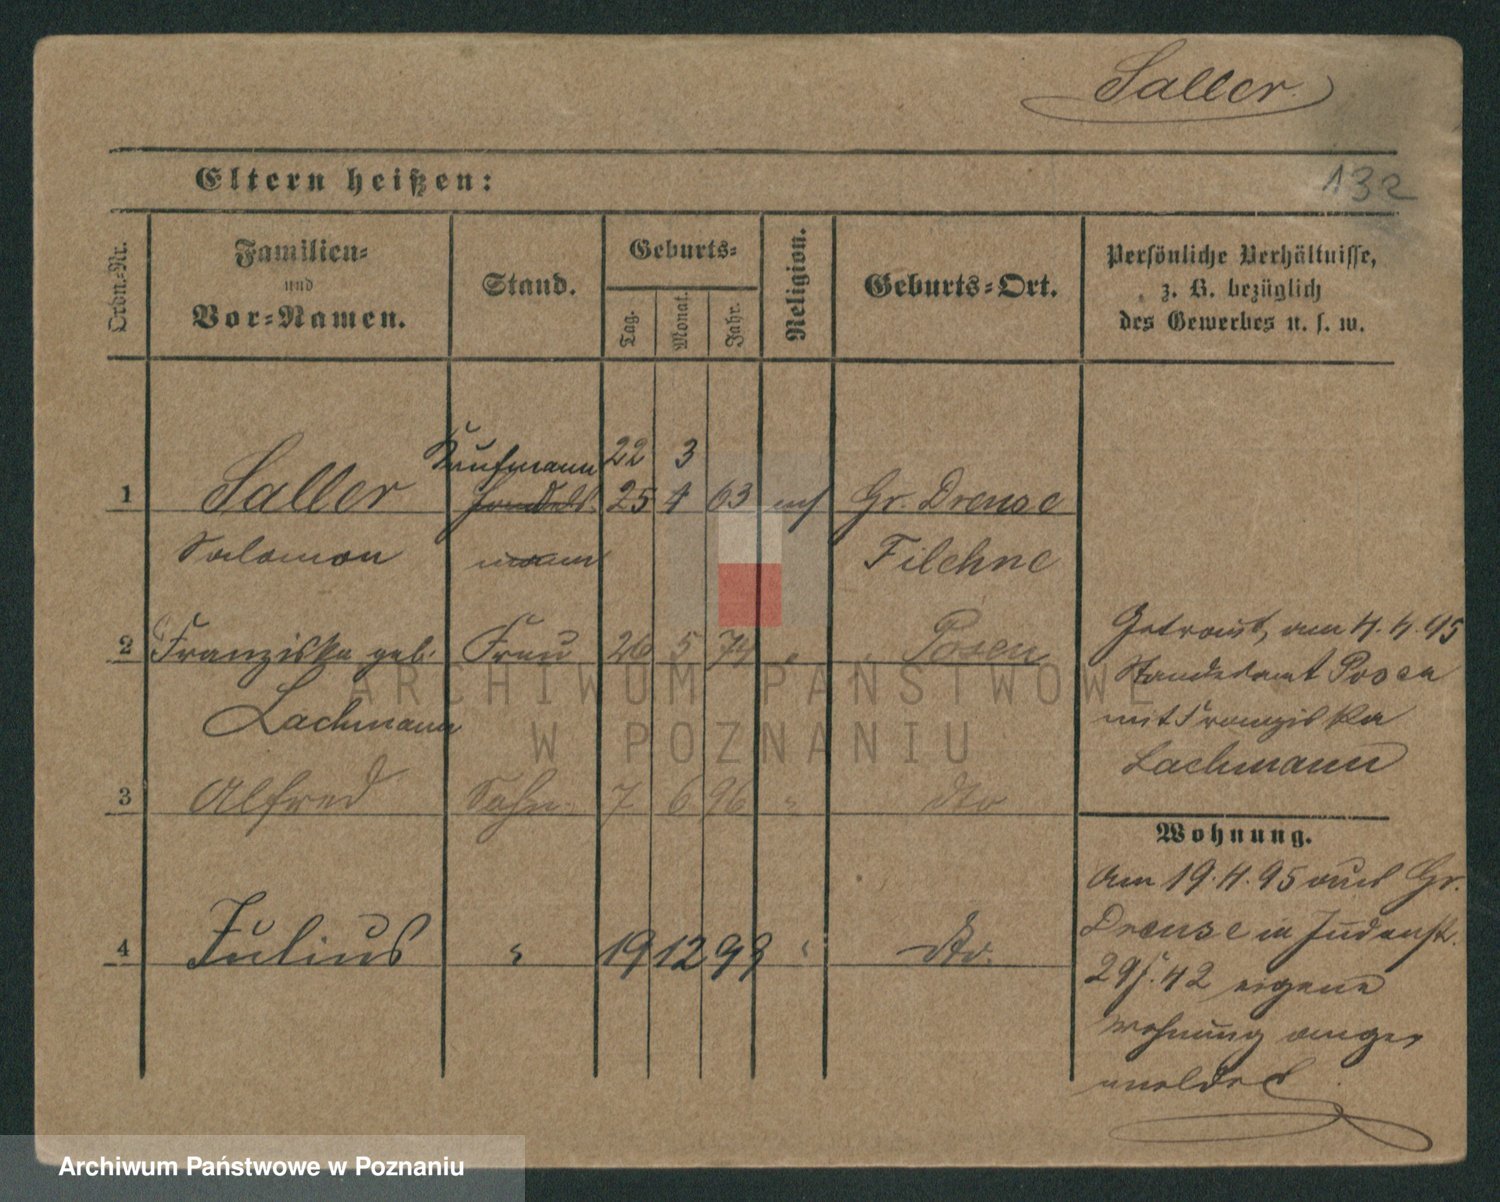 Saller.
Eltern heißen:
132
Ordn.-Nr.
Familien-
und
Vor-Namen.
Stand.
Geburts-
Tag.
Monat.
Jahr.
Religion.
Geburts-Ort.
Persönliche Verhältnisse,
z. B. bezüglich
des Gewerbes u. s. w.
Kaufmann 22 3
1 Saller Handels- 25 4 63 mos Gr. Drense
Salomon mann Filehne
2 Franziska geb. Frau 26 5 74 " Posen
Lachmann
3 Alfred Sohn. 7 6 96 " dto
4 Julius " 19 12 99 " dto.
Getraut, am 4.4.95
Standesamt Posen
mit Franziska
Lachmann
Wohnung.
Am 19.4.95 aus Gr.
Drense in Judenstr.
29 42 eigene
Wohnung ange-
meldet
ARCHIWUM PAŃSTWOWE
W POZNANIU
Archiwum Państwowe w Poznaniu